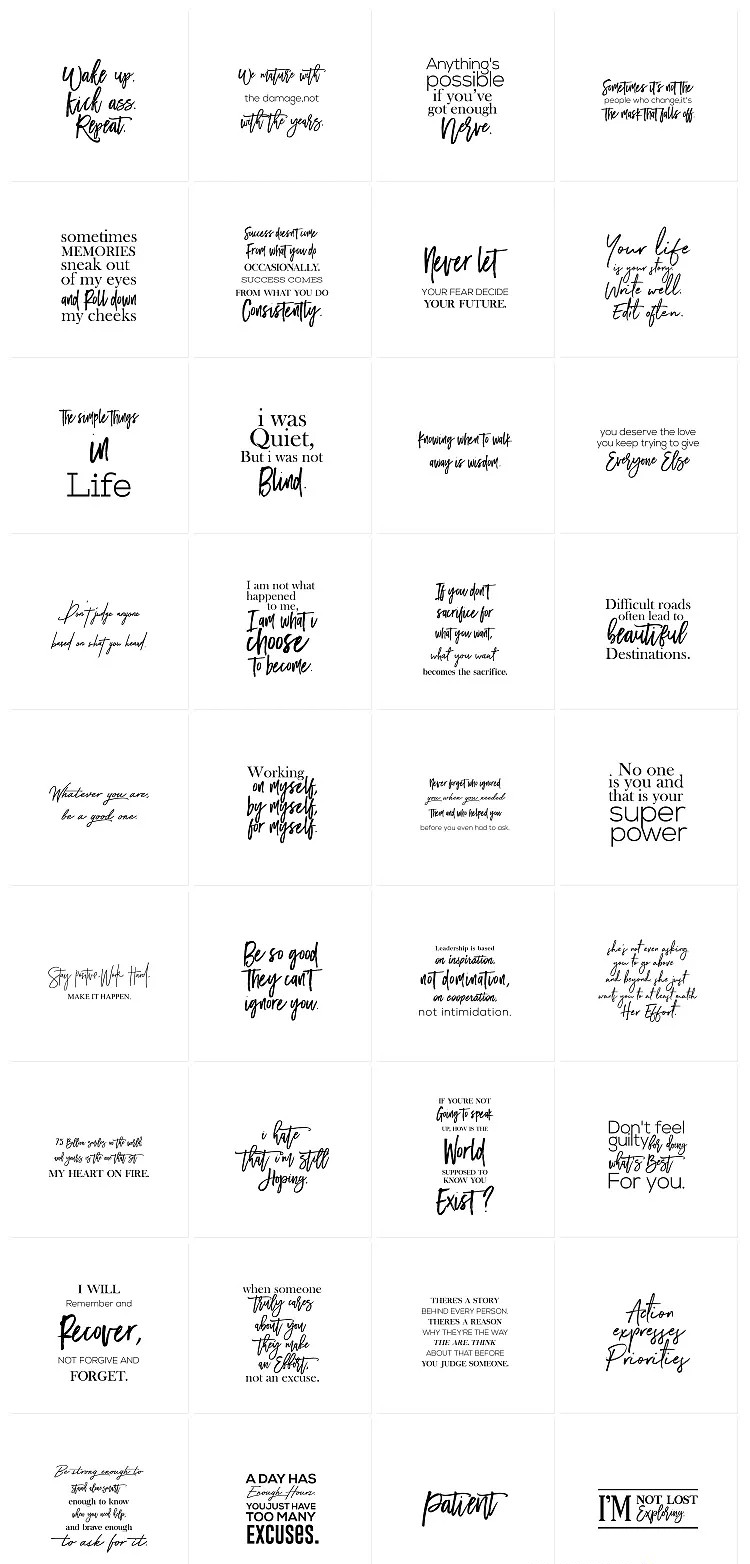 Wake up.
Kick ass.
Repeat.
We mature with
the damage,not
with the years.
Anything's
possible
if you've
got enough
Nerve.
Sometimes it's not the
people who change,it's
The mask that falls off.
sometimes
MEMORIES
sneak out
of my eyes
and Roll down
my cheeks
Success doesn't come
From what you do
OCCASIONALLY.
SUCCESS COMES
FROM WHAT YOU DO
Consistently.
Never let
YOUR FEAR DECIDE
YOUR FUTURE.
Your life
is your story.
Write well.
Edit often.
The simple things
in
Life
i was
Quiet,
But i was not
Blind.
Knowing when to walk
away is wisdom.
you deserve the love
you keep trying to give
Everyone Else
Don't judge anyone
based on what you heard.
I am not what
happened
to me,
I am what i
choose
To become.
If you don't
sacrifice for
what you want,
what you want
becomes the sacrifice.
Difficult roads
often lead to
beautiful
Destinations.
Whatever you are,
be a good one.
Working
on myself,
by myself,
for myself.
Never forget who ignored
you when you needed
Them and who helped you
before you even had to ask.
. No one
is you and
that is your
super
power
Stay positive. Work Hard.
MAKE IT HAPPEN.
Be so good
They can't
ignore you.
Leadership is based
on inspiration,
not domination,
on cooperation,
not intimidation.
she's not even asking
you to go above
and beyond she just
want you to at least match
Her Effort.
7.5 Billion smiles in the world
and yours is the one that set
MY HEART ON FIRE.
i hate
that i'm still
Hoping.
IF YOU'RE NOT
Going to speak
UP, HOW IS THE
World
SUPPOSED TO
KNOW YOU
Exist?
Don't feel
guilty for doing
what's Best
For you.
I WILL
Remember and
Recover,
NOT FORGIVE AND
FORGET.
when someone
Truly cares
about you
They make
an Effort,
not an excuse.
THERE'S A STORY
BEHIND EVERY PERSON.
THERE'S A REASON
WHY THEY'RE THE WAY
THE ARE. THINK
ABOUT THAT BEFORE
YOU JUDGE SOMEONE.
Action
expresses
Priorities
Be strong enough to
stand alone, smart
enough to know
when you need help,
and brave enough
to ask for it.
A DAY HAS
Enough Hours.
YOU JUST HAVE
TOO MANY
EXCUSES.
patient
I'M NOT LOST
Exploring.